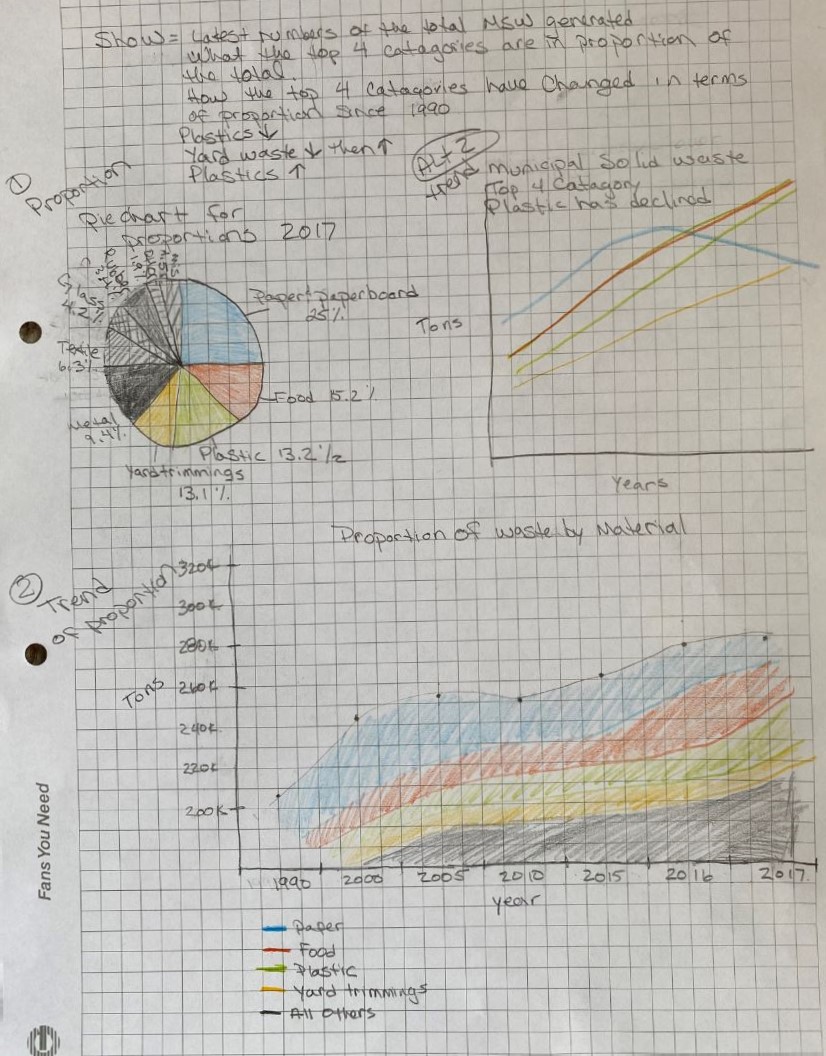 Show = Latest numbers of the total MSW generated
What the top 4 catagories are in proportion of
the total.
How the top 4 Catagories have Changed in terms
of proportion since 1990
Plastics ↓
Yard waste ↓ then ↑
Plastics ↑
① Proportion
Pie chart for
proportions 2017
Paper + paperboard
25%
Food 15.2%
Plastic 13.2%
Yard trimmings
13.1%
Metal
9.4%
Textile
6.3%
Glass
4.2%
Alt 2
trend
Municipal Solid Waste
Top 4 Catagory
Plastic has declined
Tons
Years
Proportion of waste by Material
② Trend
of proportion
Tons
320K
300K
280K
260K
240K
220K
200K
1990 2000 2005 2010 2015 2016 2017
year
Paper
Food
Plastic
Yard trimmings
All others
Fans You Need